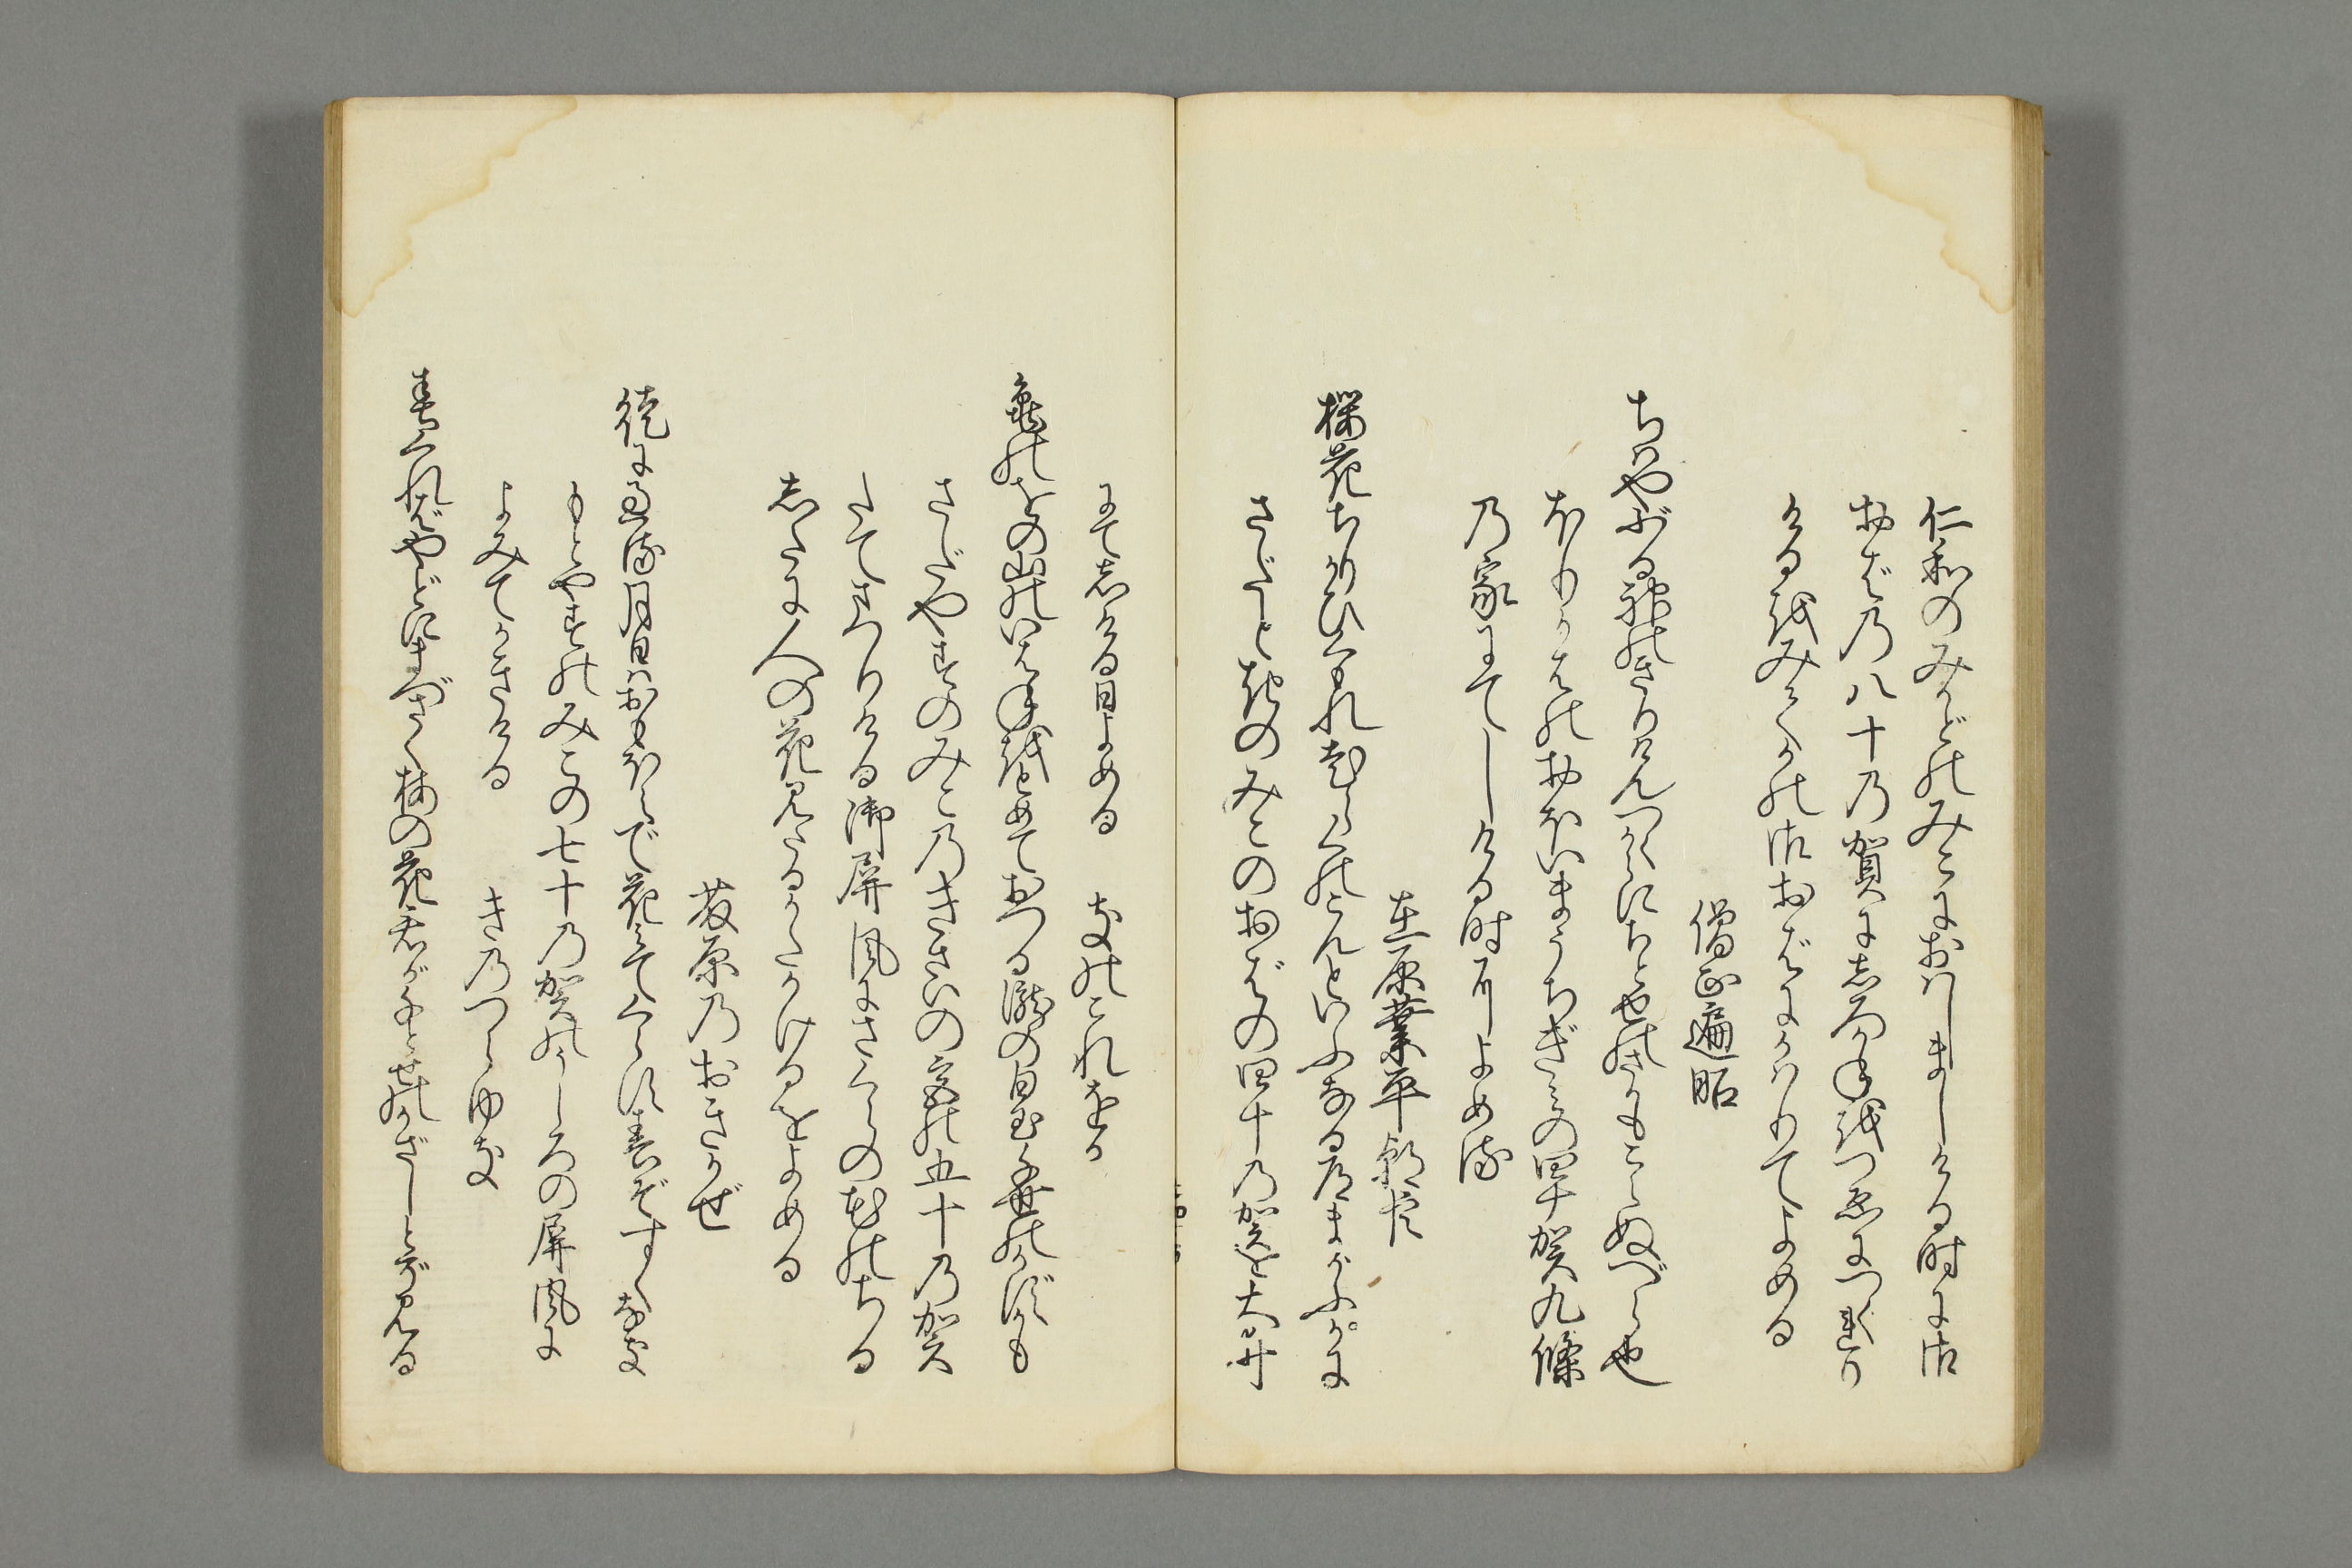 仁和のみかどのみこにおはしましける時に御
おばの八十の賀にしろかねをつゑにつくれり
けるをみてかの御おばにかはりてよめる
僧正遍昭
ちはやぶる神のきりけんつくからにちとせのさかもこえぬべら也
ほりかはのおほいまうちぎみの四十賀九條
の家にてしける時によめる
在原業平朝臣
桜花ちりかひくもれおいらくのこんといふなる道まがふがに
さだときのみこのおばの四十の賀を大井
にてしける日よめる　きのこれをか
亀のをの山のいはねをとめておつる瀧の白玉千世のかずかも
さだやすのみこのきさいの宮の五十の賀
たてまつりける御屏風にさくらの花のちる
したに人の花見たるかたかけるをよめる
藤原のおきかぜ
徒に過る月日はおもほえで花みてくらす春ぞすくなき
もとやすのみこの七十の賀のうしろの屏風に
よみてかきける　きのつらゆき
春くればやどにまづさく梅の花君が千とせのかざしとぞ見る